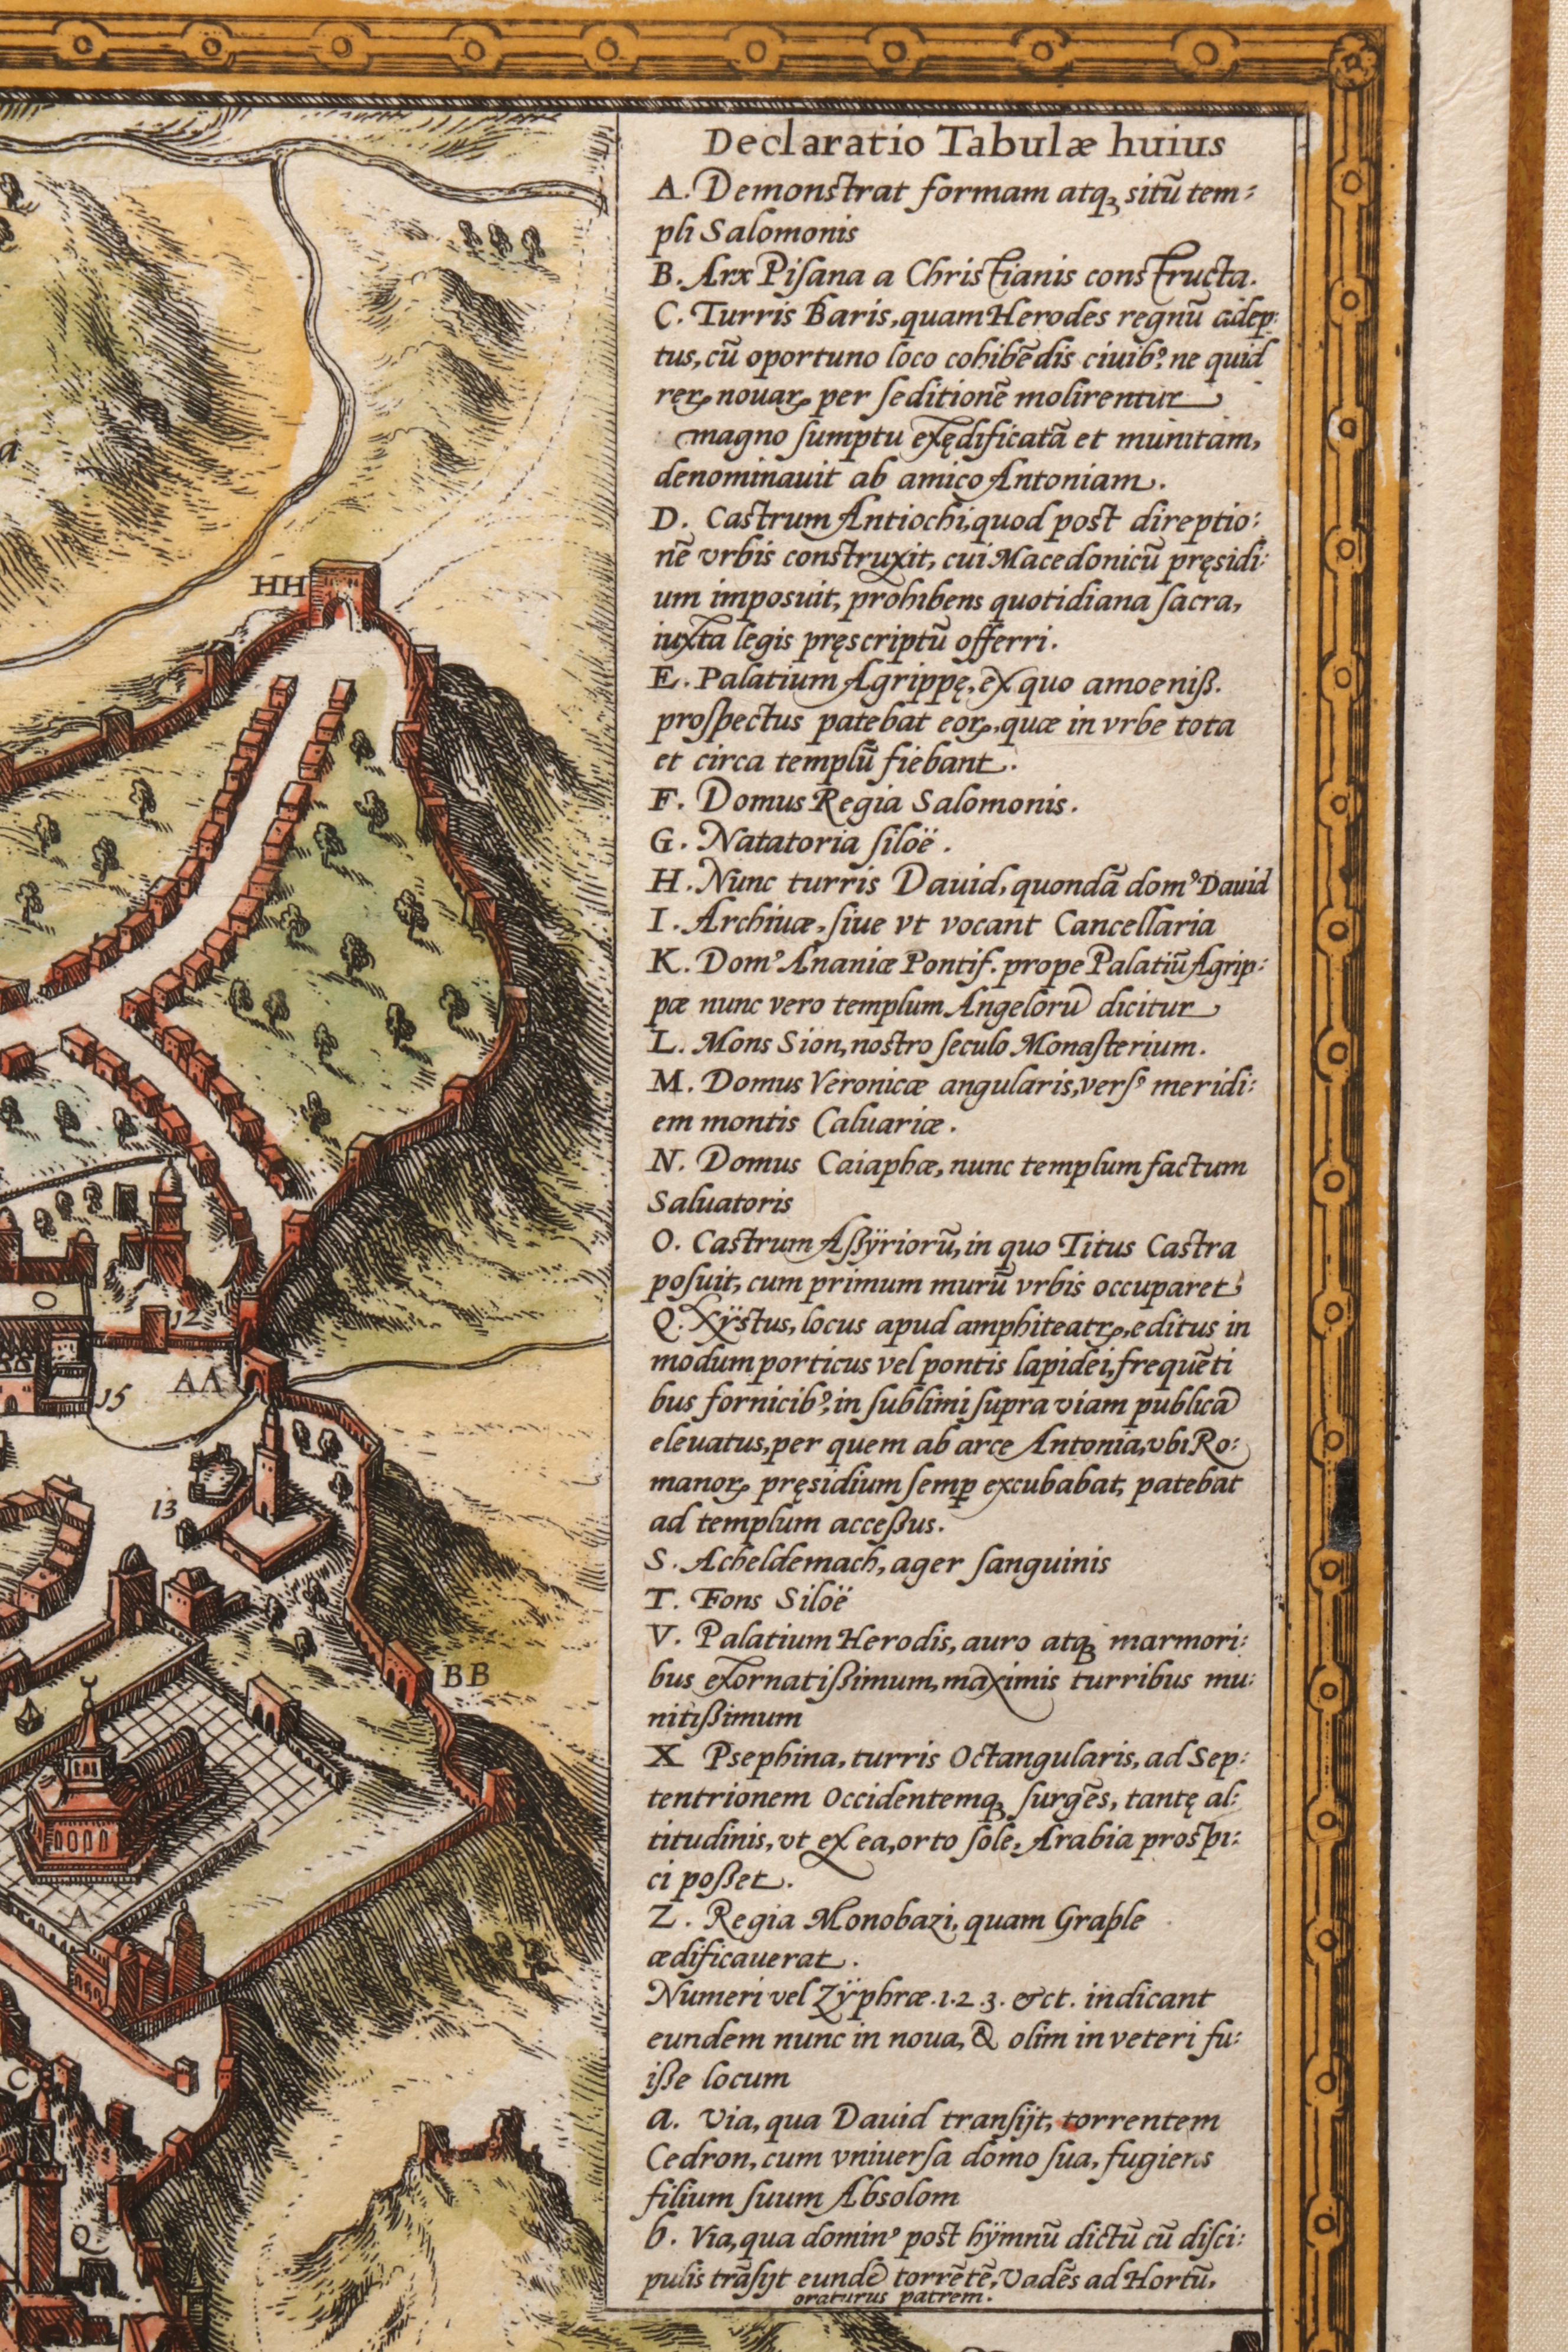 Declaratio Tabulæ huius
A. Demonſtrat formam atqꝫ sitū tem:
pli Salomonis
B. Arx Piſana a Chriſtianis conſtructa.
C. Turris Baris, quam Herodes ręgnū adep:
tus, cū oportuno loco cohibēdis ciuibꝰ, ne quid
rerꝝ nouarꝝ per ſeditionē molirentur
magno ſumptu exędificatā et munitam,
denominauit ab amico Antoniam.
D. Caſtrum Antiochi, quod poſt direptio:
nē vrbis conſtruxit, cui Macedonicū pręsidi:
um imposuit, prohibens quotidiana ſacra,
iuxta legis pręscriptū offerri.
E. Palatium Agrippę, ex quo amoeniß.
proſpectus patebat eoꝝ, quæ in vrbe tota
et circa templū fiebant.
F. Domus Regia Salomonis.
G. Natatoria ſiloë.
H. Nunc turris Dauid, quondā domꝰ Dauid
I. Archiuæ, ſiue vt vocant Cancellaria
K. Domꝰ Ananiæ Pontif. prope Palatiū Agrip:
pæ nunc vero templum Angelorū dicitur
L. Mons Sion, noſtro ſeculo Monaſterium.
M. Domus Veronicæ angularis, verſꝰ meridi:
em montis Caluariæ.
N. Domus Caiaphæ, nunc templum factum
Saluatoris
O. Caſtrum Aßÿriorū, in quo Titus Caſtra
poſuit, cum primum murū vrbis occuparet
Q. Xÿſtus, locus apud amphiteatꝝ, editus in
modum porticus vel pontis lapidei, frequēti
bus fornicibꝰ, in ſublimi ſupra viam publicā
eleuatus, per quem ab arce Antonia, vbi Ro:
manoꝝ pręsidium ſemꝑ excubabat, patebat
ad templum acceßus.
S. Acheldemach, ager ſanguinis
T. Fons Siloë
V. Palatium Herodis, auro atqꝫ marmori:
bus exornatißimum, maximis turribus mu:
nitißimum
X Psephina, turris Octangularis, ad Sep:
tentrionem Occidentemqꝫ ſurgēs, tantę al:
titudinis, vt ex ea, orto ſole, Arabia proſpi:
ci poßet.
Z. Regia Monobazi, quam Graple
ædificauerat.
Numeri vel Zÿphræ .1.2.3. &ct. indicant
eundem nunc in noua, & olim in veteri fu:
iße locum
a. Via, qua Dauid tranſijt, torrentem
Cedron, cum vniuerſa domo ſua, fugiens
filium ſuum Abſolom
b. Via, qua dominꝰ poſt hÿmnū dictū cū diſci:
pulis trāſijt eundē torrētē, Vadēs ad Hortū,
oraturus patrem.
a
HH
O
12
AA
15
13
BB
A
C
Q